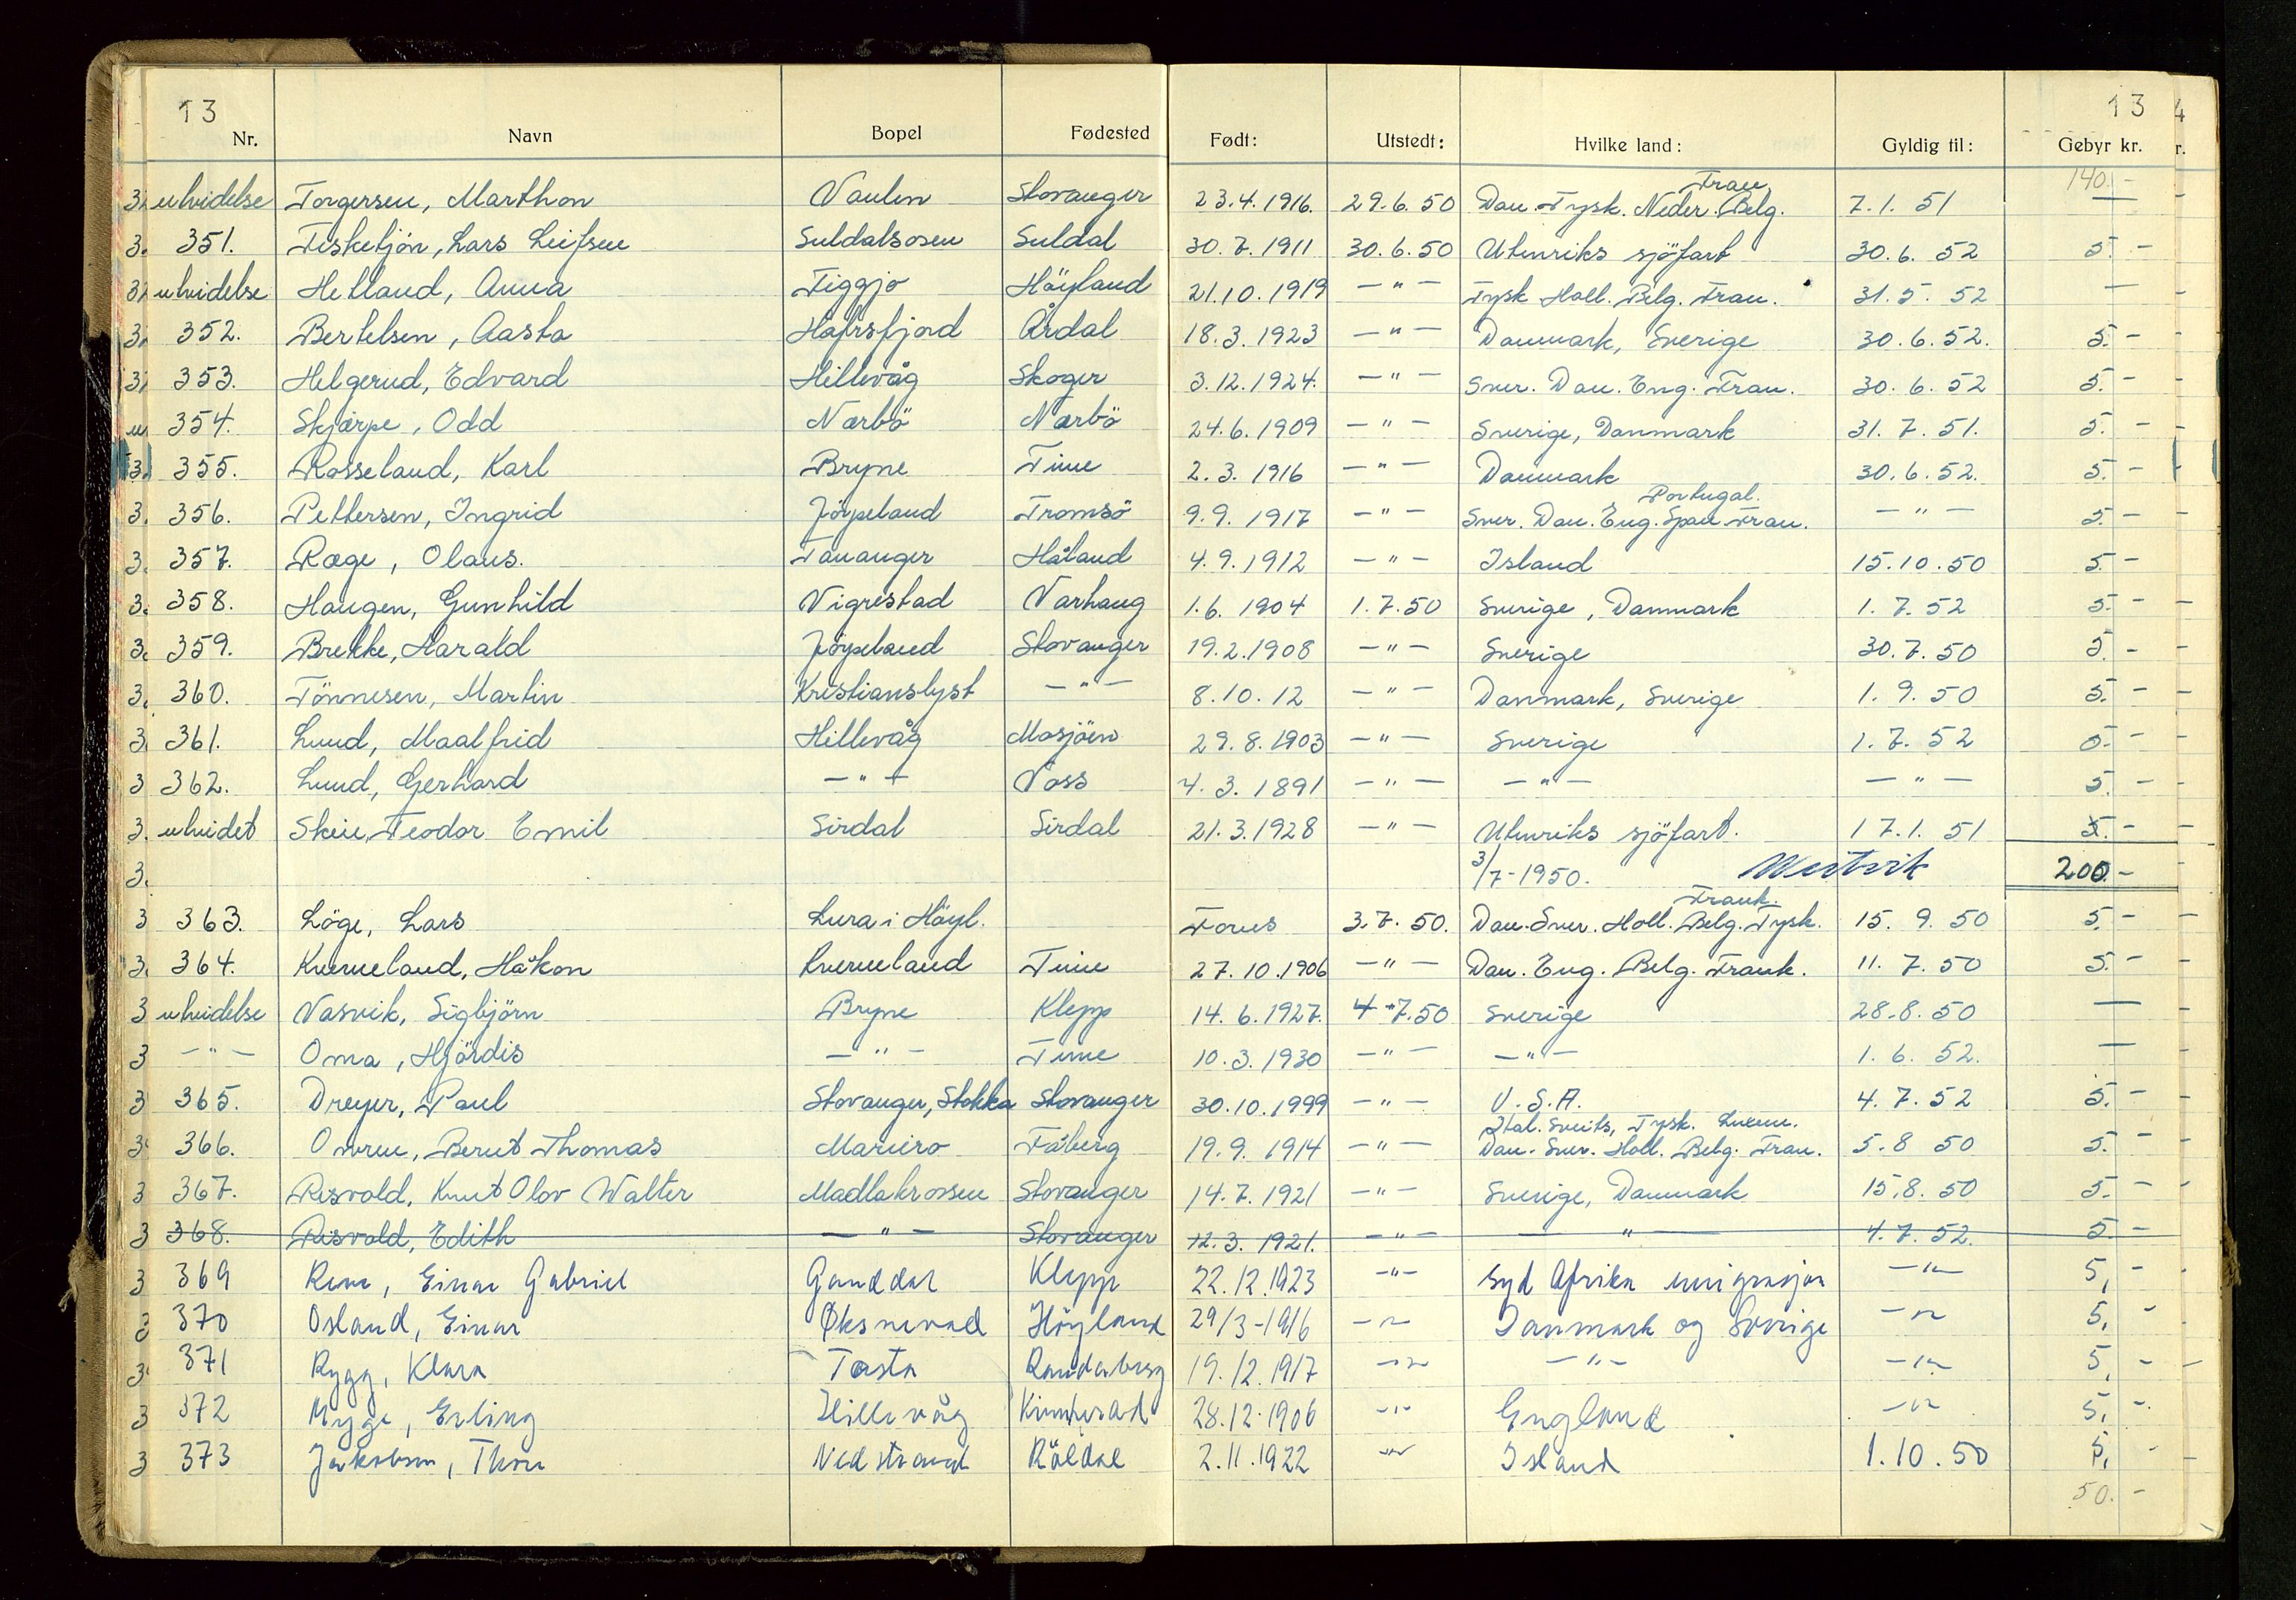 13 13
Nr. Navn Bopel Fødested Født: Utstedt: Hvilke land: Gyldig til: Gebyr kr.
140.-
utvidelse Torgersen, Marthon Vaulen Stavanger 23.4.1916. 29.6.50 Dan. Tysk. Neder. Belg. Fran 7.1.51 —
351. Fisketjön, Lars Leifsen Suldalsosen Suldal 30.7.1911 30.6.50 Utenriks sjöfart 30.6.52 5.-
utvidelse Helland, Anna Figgjo Höyland 21.10.1919 -"- Tysk Holl. Belg. Fran. 31.5.52 —
352. Bertelsen, Aasta Hafrsfjord Årdal 18.3.1923 -"- Danmark, Sverige 30.6.52. 5.-
353. Helgerud, Edvard Hillevåg Skoger 3.12.1924. -"- Sver. Dan. Eng. Fran. 30.6.52 5.-
354. Skjærpe, Odd Nærbö Nærbö 24.6.1909 -"- Sverige, Danmark 31.7.51. 5.-
355. Rosseland, Karl Bryne Time 2.3.1916 -"- Danmark 30.6.52. 5.-
356. Pettersen, Ingrid Jörpeland Tromsö 9.9.1917 -"- Sver. Dan. Eng. Span Fran. Portugal. -"- 5.-
357. Ræge, Olaus. Tananger Håland 4.9.1912 -"- Island 15.10.50 5.-
358. Haugen, Gunhild Vigrestad Varhaug 1.6.1904 1.7.50 Sverige, Danmark 1.7.52 5.-
359. Brekke, Harald Jörpeland Stavanger 19.2.1908 -"- Sverige 30.7.50 5.-
360. Tönnesen, Martin Kristianslyst -"- 8.10.12 -"- Danmark, Sverige 1.9.50 5.-
361. Lund, Maalfrid Hillevåg Mosjöen 29.8.1903 -"- Sverige 1.7.52 5.-
362. Lund, Gerhard -"- Voss 4.3.1891 -"- -"- -"- 5.-
utvidet Skeie, Teodor Emil Sirdal Sirdal 21.3.1928 -"- Utenriks sjöfart. 17.1.51 5.-
3/7-1950. 200.-
363. Löge, Lars Lura i Höyl. Forus 3.7.50. Dan. Sver. Holl. Belg. Tysk. Frank. 15.9.50 5.-
364. Kverneland, Håkon Kverneland Time 27.10.1906 -"- Dan. Eng. Belg. Frank. 11.7.50 5.-
utvidelse Vasvik, Sigbjörn Bryne Klepp 14.6.1927. 4.7.50 Sverige 28.8.50 —
-"- Oma, Hjördis -"- Time 10.3.1930 -"- -"- 1.6.52. —
365. Dreyer, Paul Stavanger, Stokka Stavanger 30.10.1999 -"- U.S.A. 4.7.52 5.-
366. Omren, Bernt Thomas Mariero Fåberg 19.9.1914 -"- Ital. Sveits, Tysk. Luxem. Dan. Sver. Holl. Belg. Fran. 5.8 50 5.-
367. Risvold, Knut Olov Walter Madlakrossen Stavanger 14.7.1921 -"- Sverige, Danmark 15.8.50 5.-
368. Risvold, Edith -"- Stavanger 12.3.1921. -"- -"- 4.7.52. 5.-
369 Einar Gabriel Ganddal Klepp 22.12.1923 -"- Syd Afrika emigrasjon -"- 5,-
370 Osland, Einar Øksnevad Höyland 29/3-1916 -"- Danmark og Sverige -"- 5,-
371 Rygg, Klara Tasta Randaberg 19.12.1917 -"- -"- -"- 5,-
372 Myge, Erling Hillevåg 28.12.1906 -"- England -"- 5,-
373 Jakobsen, Thor Nedstrand Röldal 2.11.1922 -"- Island 1.10.50 5,-
50.-